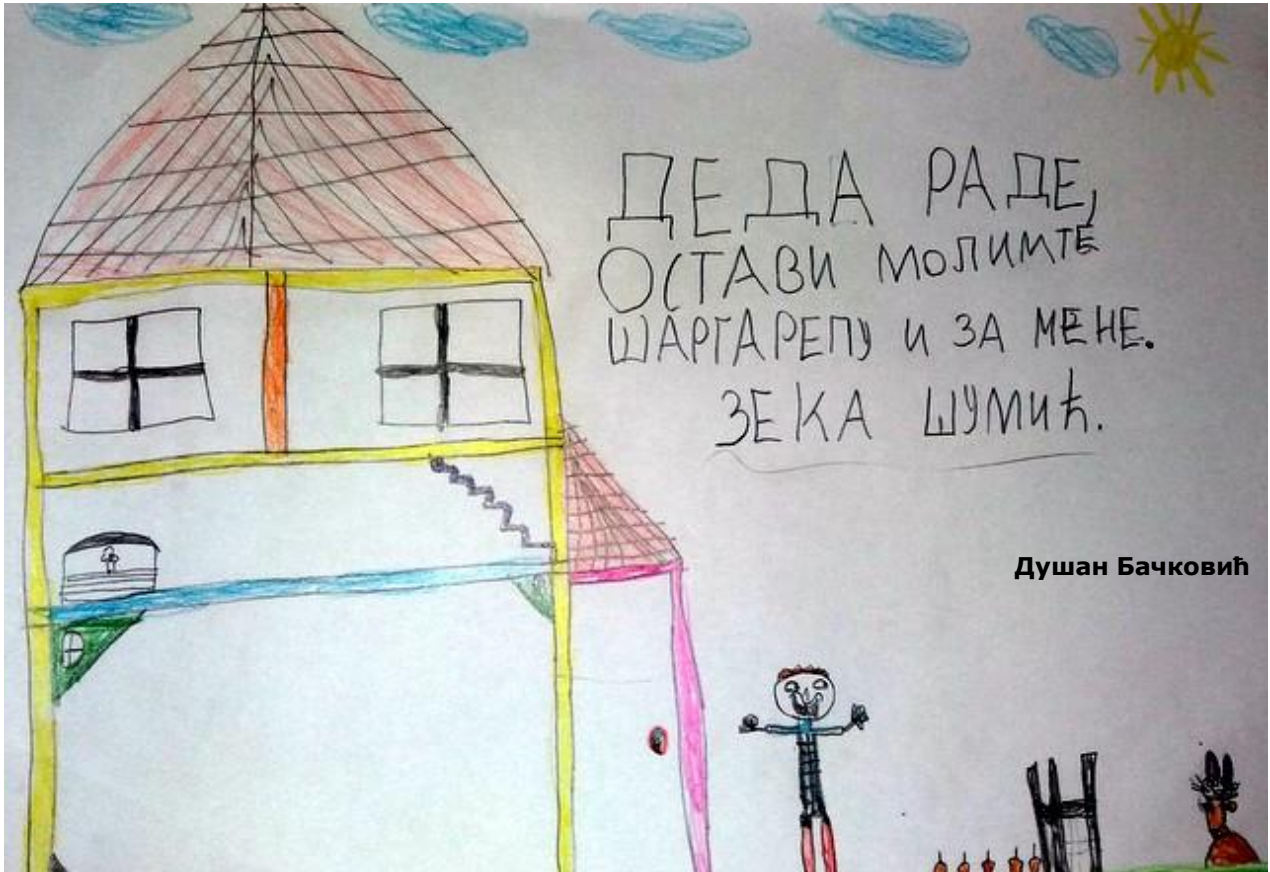 ДЕДА РАДЕ,
ОСТАВИ МОЛИМТЕ
ШАРГАРЕПУ И ЗА МЕНЕ.
ЗЕКА ШУМИЋ.
Душан Бачковић